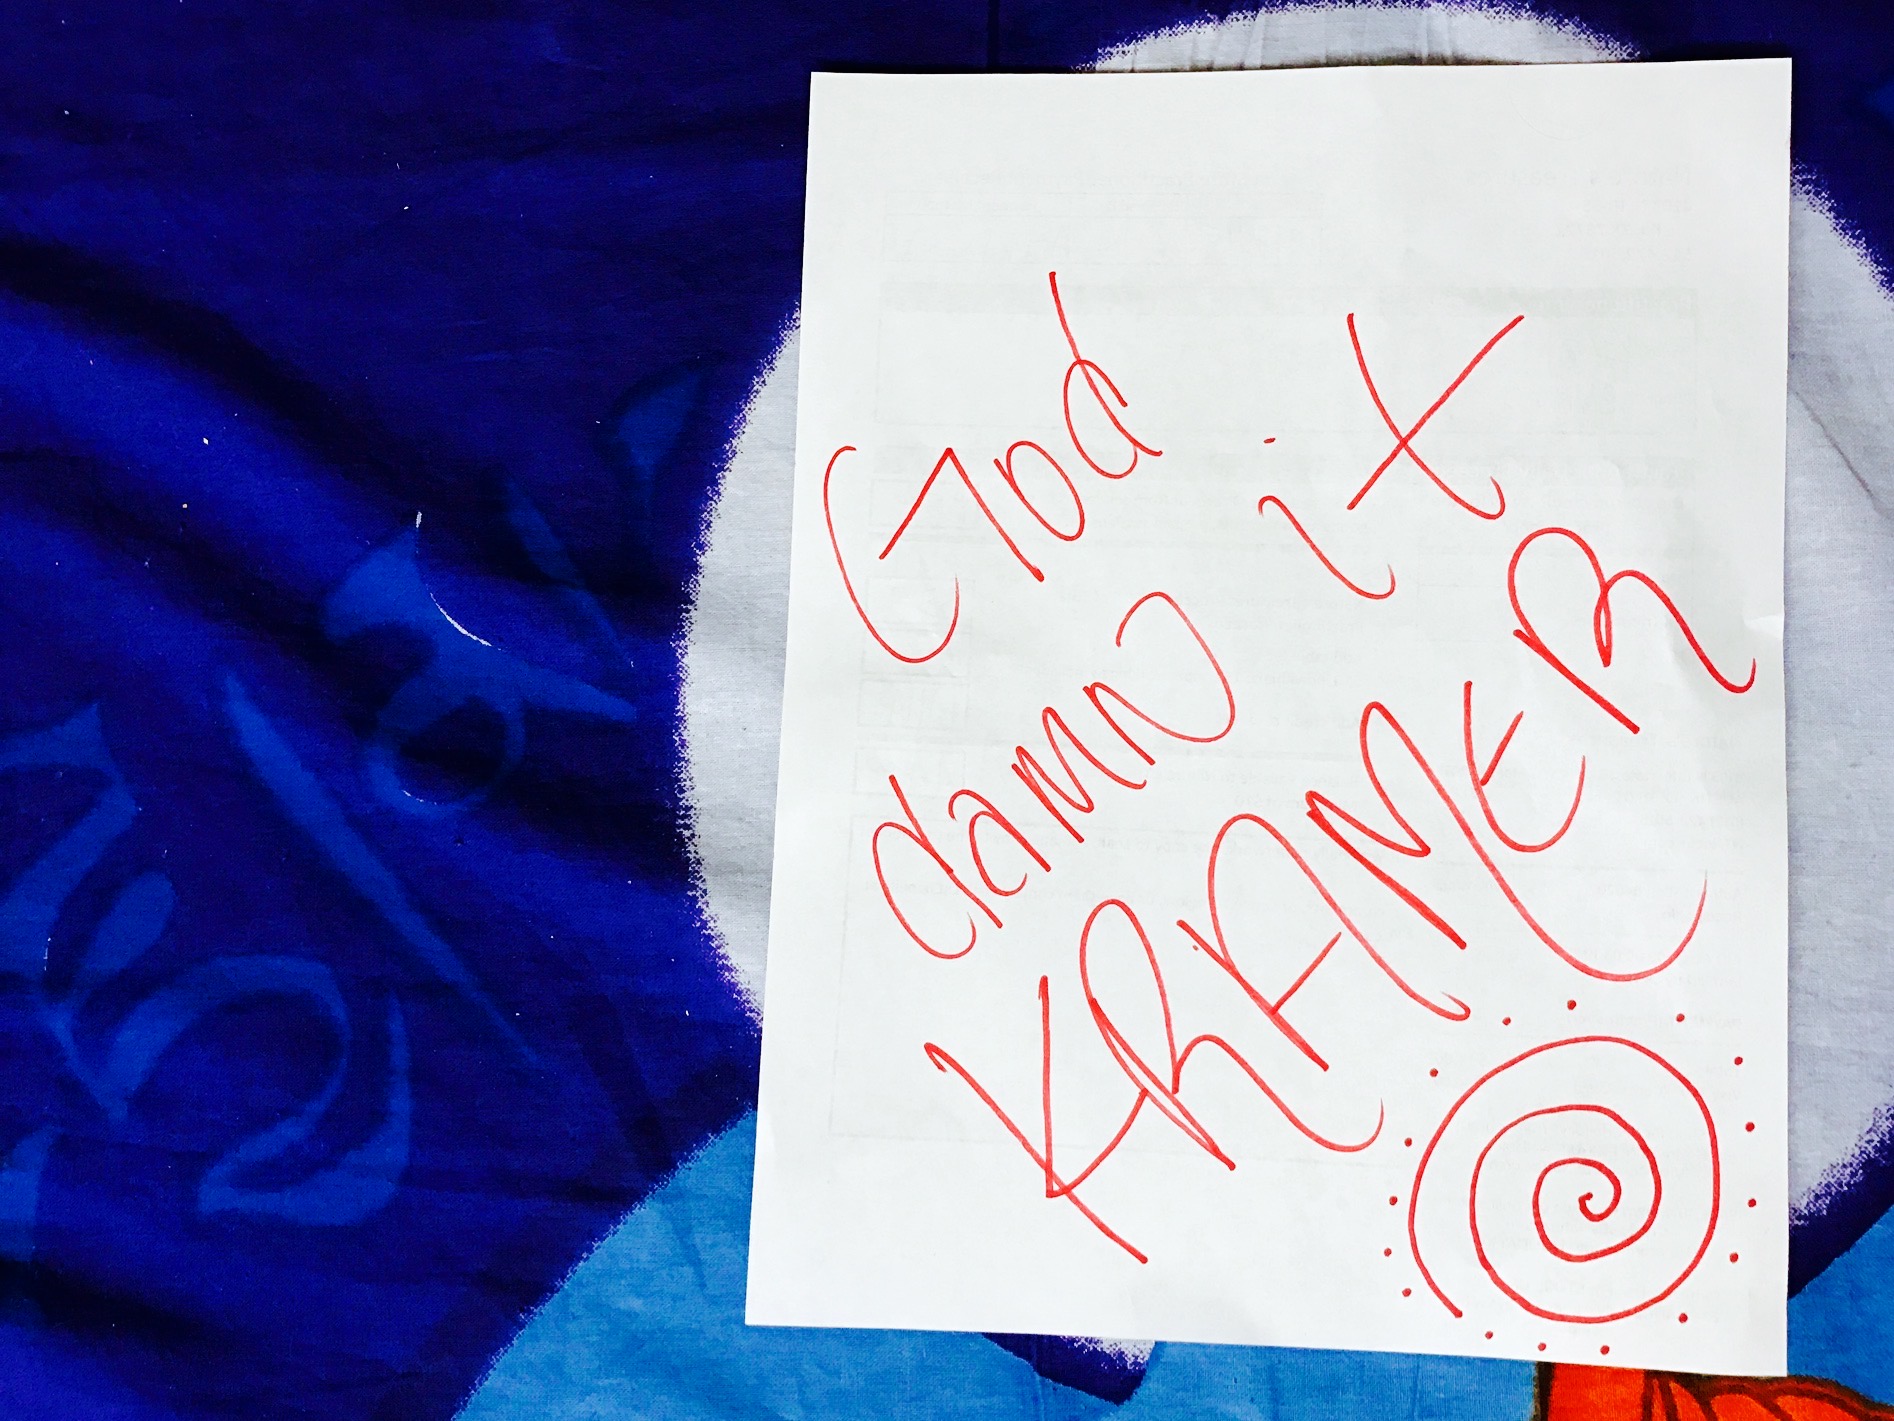 God
damn it
KRAMER